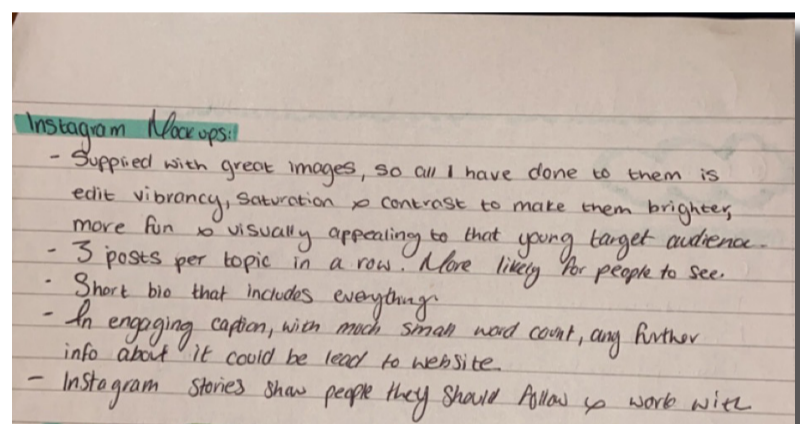 Instagram Mockups:
- Supplied with great images, so all I have done to them is
edit vibrancy, saturation & contrast to make them brighter,
more fun & visually appealing to that young target audience.
- 3 posts per topic in a row. More likely for people to see.
- Short bio that includes everything.
- An engaging caption, with much small word count, any further
info about it could be lead to website.
- Instagram stories show people they should follow & work with